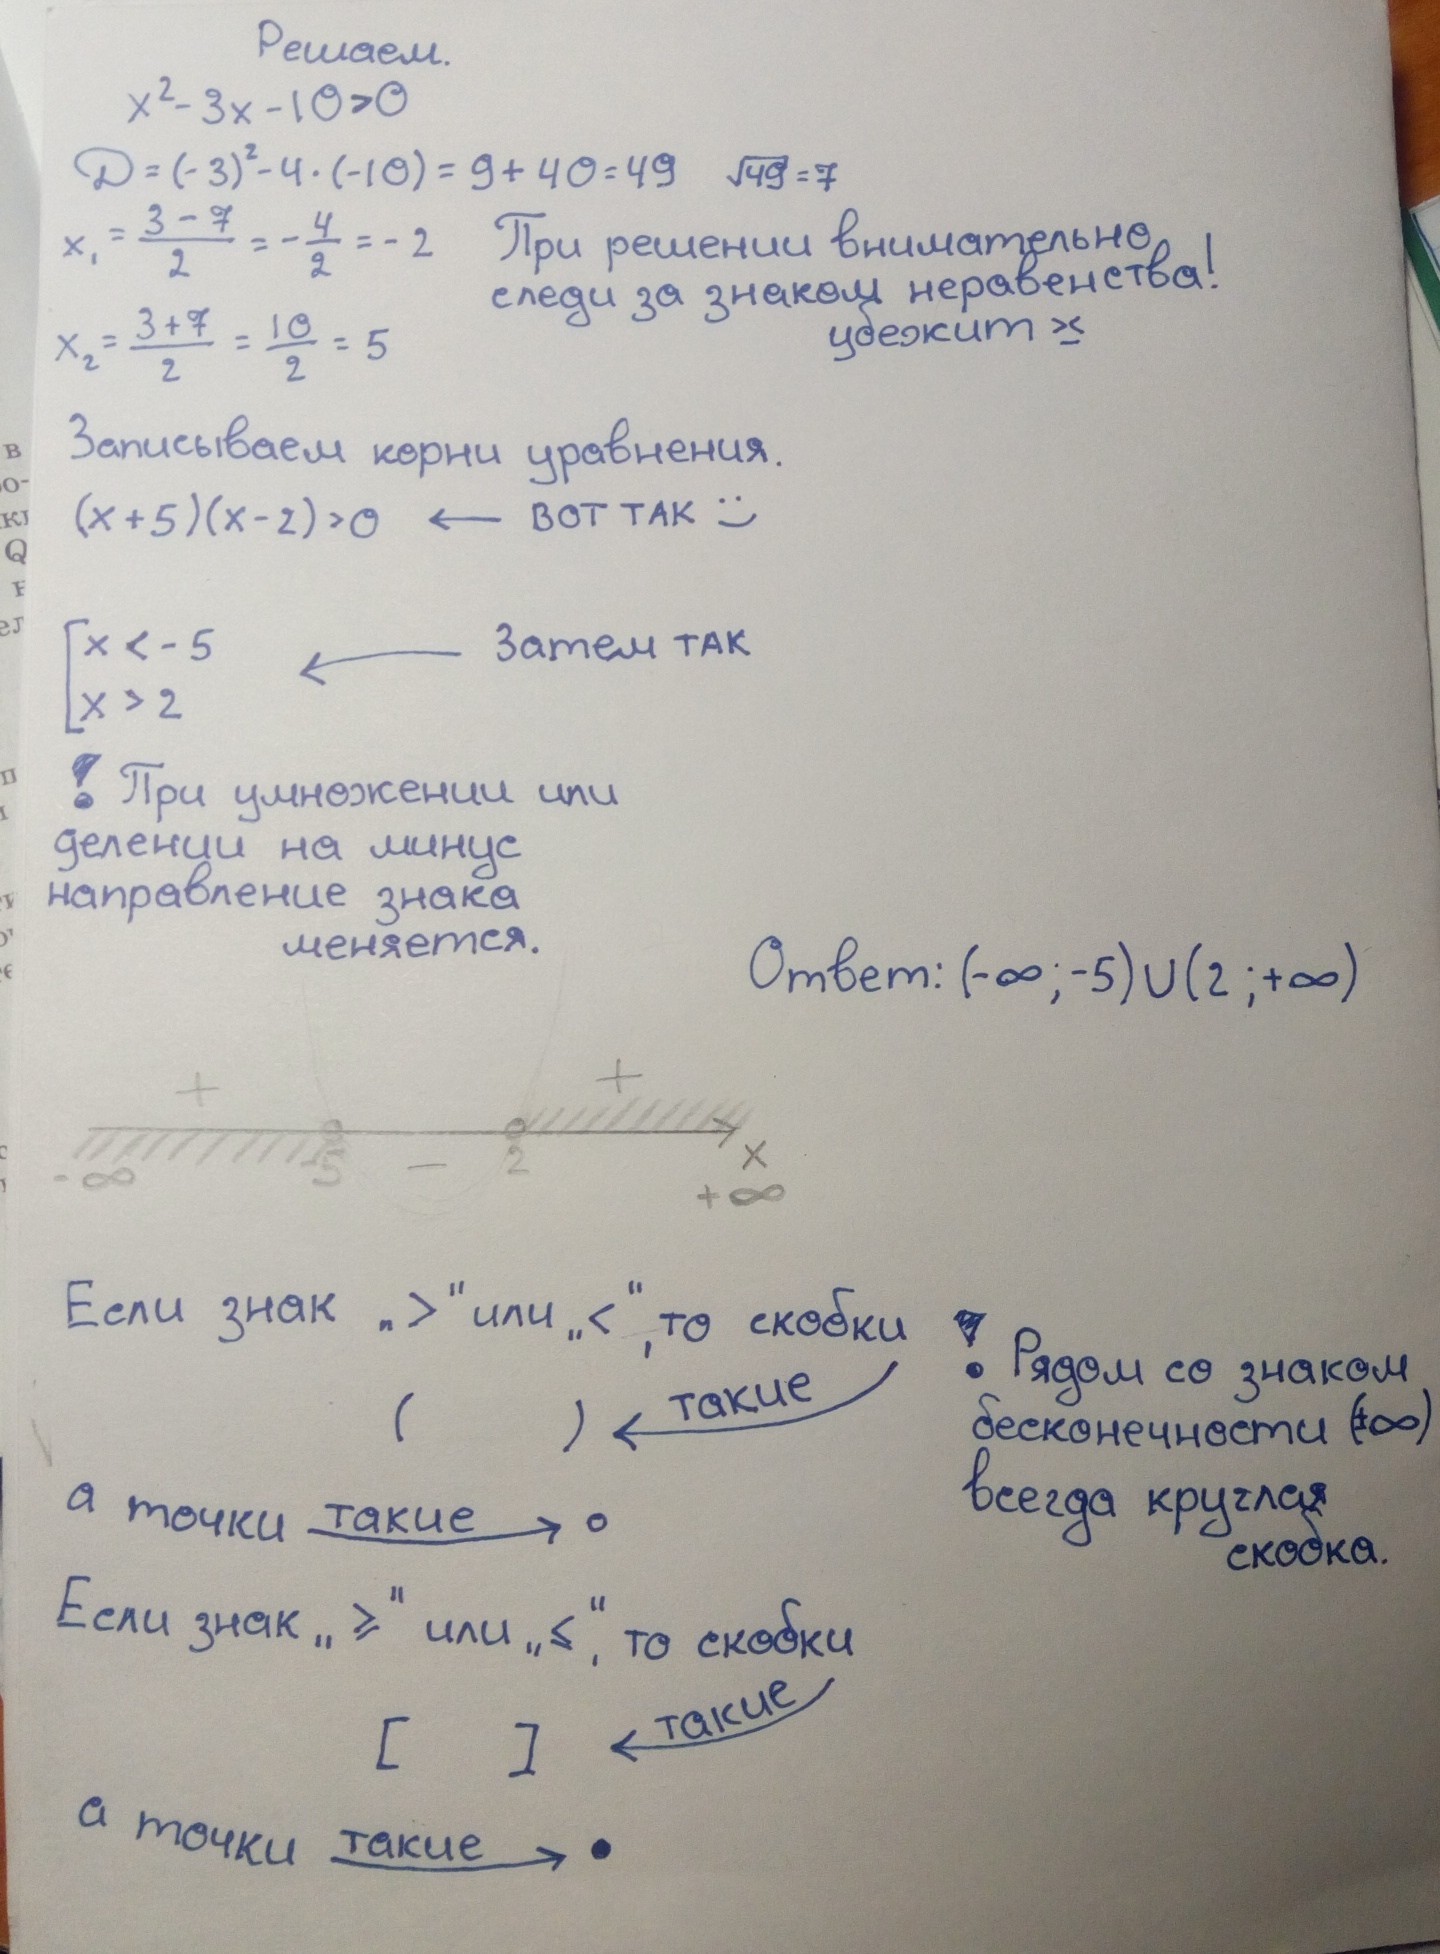 Решаем.
x²-3x-10>0
D=(-3)²-4·(-10)=9+40=49 √49=7
x₁=(3-7)/2=-4/2=-2
При решении внимательно
следи за знаком неравенства!
убежит ><
x₂=(3+7)/2=10/2=5
Записываем корни уравнения.
(x+5)(x-2)>0 ← ВОТ ТАК
[x<-5 ← Затем ТАК
x>2
! При умножении или
делении на минус
направление знака
меняется.
Ответ: (-∞;-5)∪(2;+∞)
+ +
-5 – 2 x
-∞ +∞
Если знак „>" или „<", то скобки
( ) ← такие
а точки такие → ∘
! Рядом со знаком
бесконечности (±∞)
всегда круглая
скобка.
Если знак „≥" или „≤", то скобки
[ ] ← такие
а точки такие → •